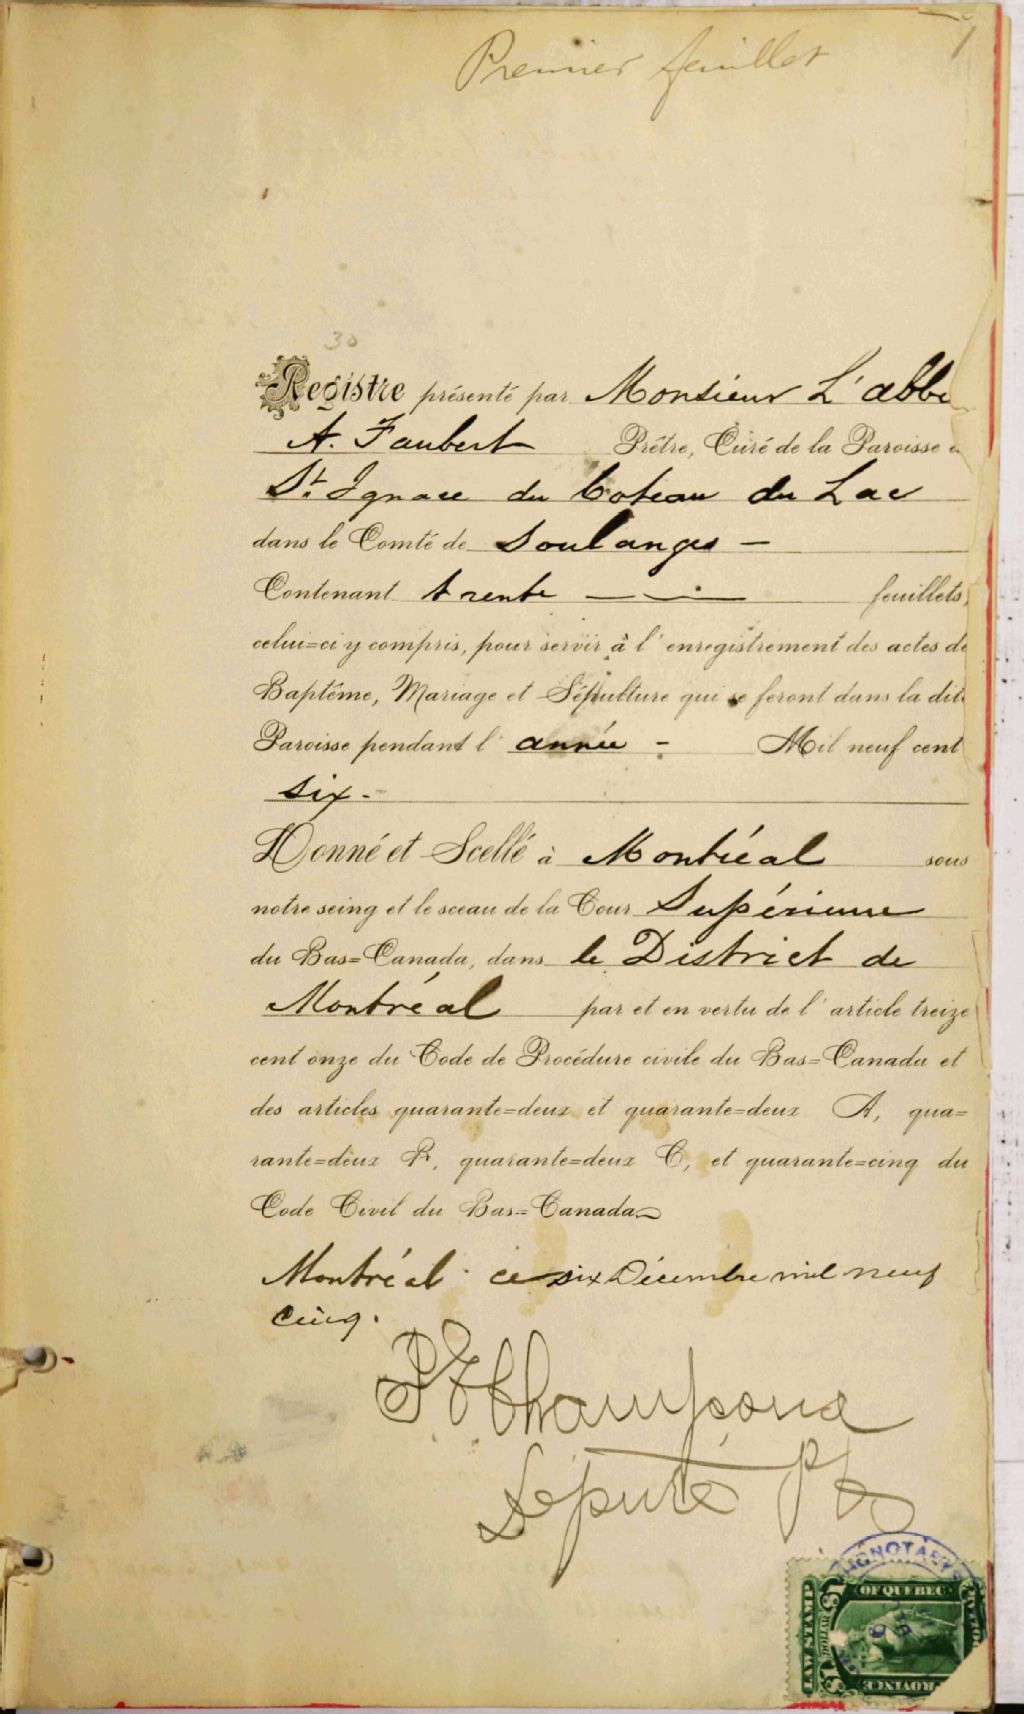 Premier feuillet
1
30
Registre présenté par Monsieur L'abbé
A. Faubert Prêtre, Curé de la Paroisse
St. Ignace du Coteau du Lac
dans le Comté de Soulanges —
Contenant trente — feuillets,
celui=ci y compris, pour servir à l'enregistrement des actes de
Baptême, Mariage et Sépulture qui se feront dans la dite
Paroisse pendant l'année - Mil neuf cent
six.-
Donné et Scellé à Montréal sous
notre seing et le sceau de la Cour Supérieure
du Bas=Canada, dans le District de
Montréal par et en vertu de l'article treize
cent onze du Code de Procédure civile du Bas=Canada et
des articles quarante=deux et quarante=deux A, qua=
rante=deux B, quarante=deux C, et quarante=cinq du
Code Civil du Bas=Canada
Montréal ce six Décembre mil neuf
cinq.
Champoux
Député P
OF QUEBEC
LAW STAMP
$1 DOLLAR $1
PROVINCE